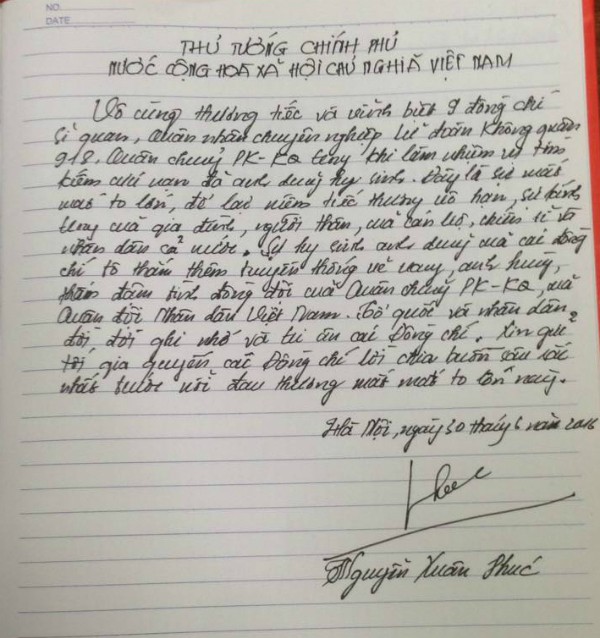 NO.
DATE
THỦ TƯỚNG CHÍNH PHỦ
NƯỚC CỘNG HOÀ XÃ HỘI CHỦ NGHĨA VIỆT NAM
Vô cùng thương tiếc và vĩnh biệt 9 đồng chí
sĩ quan, quân nhân chuyên nghiệp Lữ đoàn Không quân
918. Quân chủng PK-KQ trong khi làm nhiệm vụ tìm
kiếm cứu nạn đã anh dũng hy sinh. Đây là sự mất
mát to lớn, để lại niềm tiếc thương vô hạn, sự kính
trọng của gia đình, người thân, của cán bộ, chiến sĩ và
nhân dân cả nước. Sự hy sinh anh dũng của các đồng
chí tô thắm thêm truyền thống vẻ vang, anh hùng,
thắm đậm tình đồng đội của Quân chủng PK-KQ, của
Quân đội Nhân dân Việt Nam. Tổ quốc và nhân dân
đời đời ghi nhớ và tri ân các Đồng chí. Xin gửi
tới gia quyến các Đồng chí lời chia buồn sâu sắc
nhất trước nỗi đau thương mất mát to lớn này.
Hà Nội, ngày 30 tháng 6 năm 2016
Phuc
Nguyễn Xuân Phúc